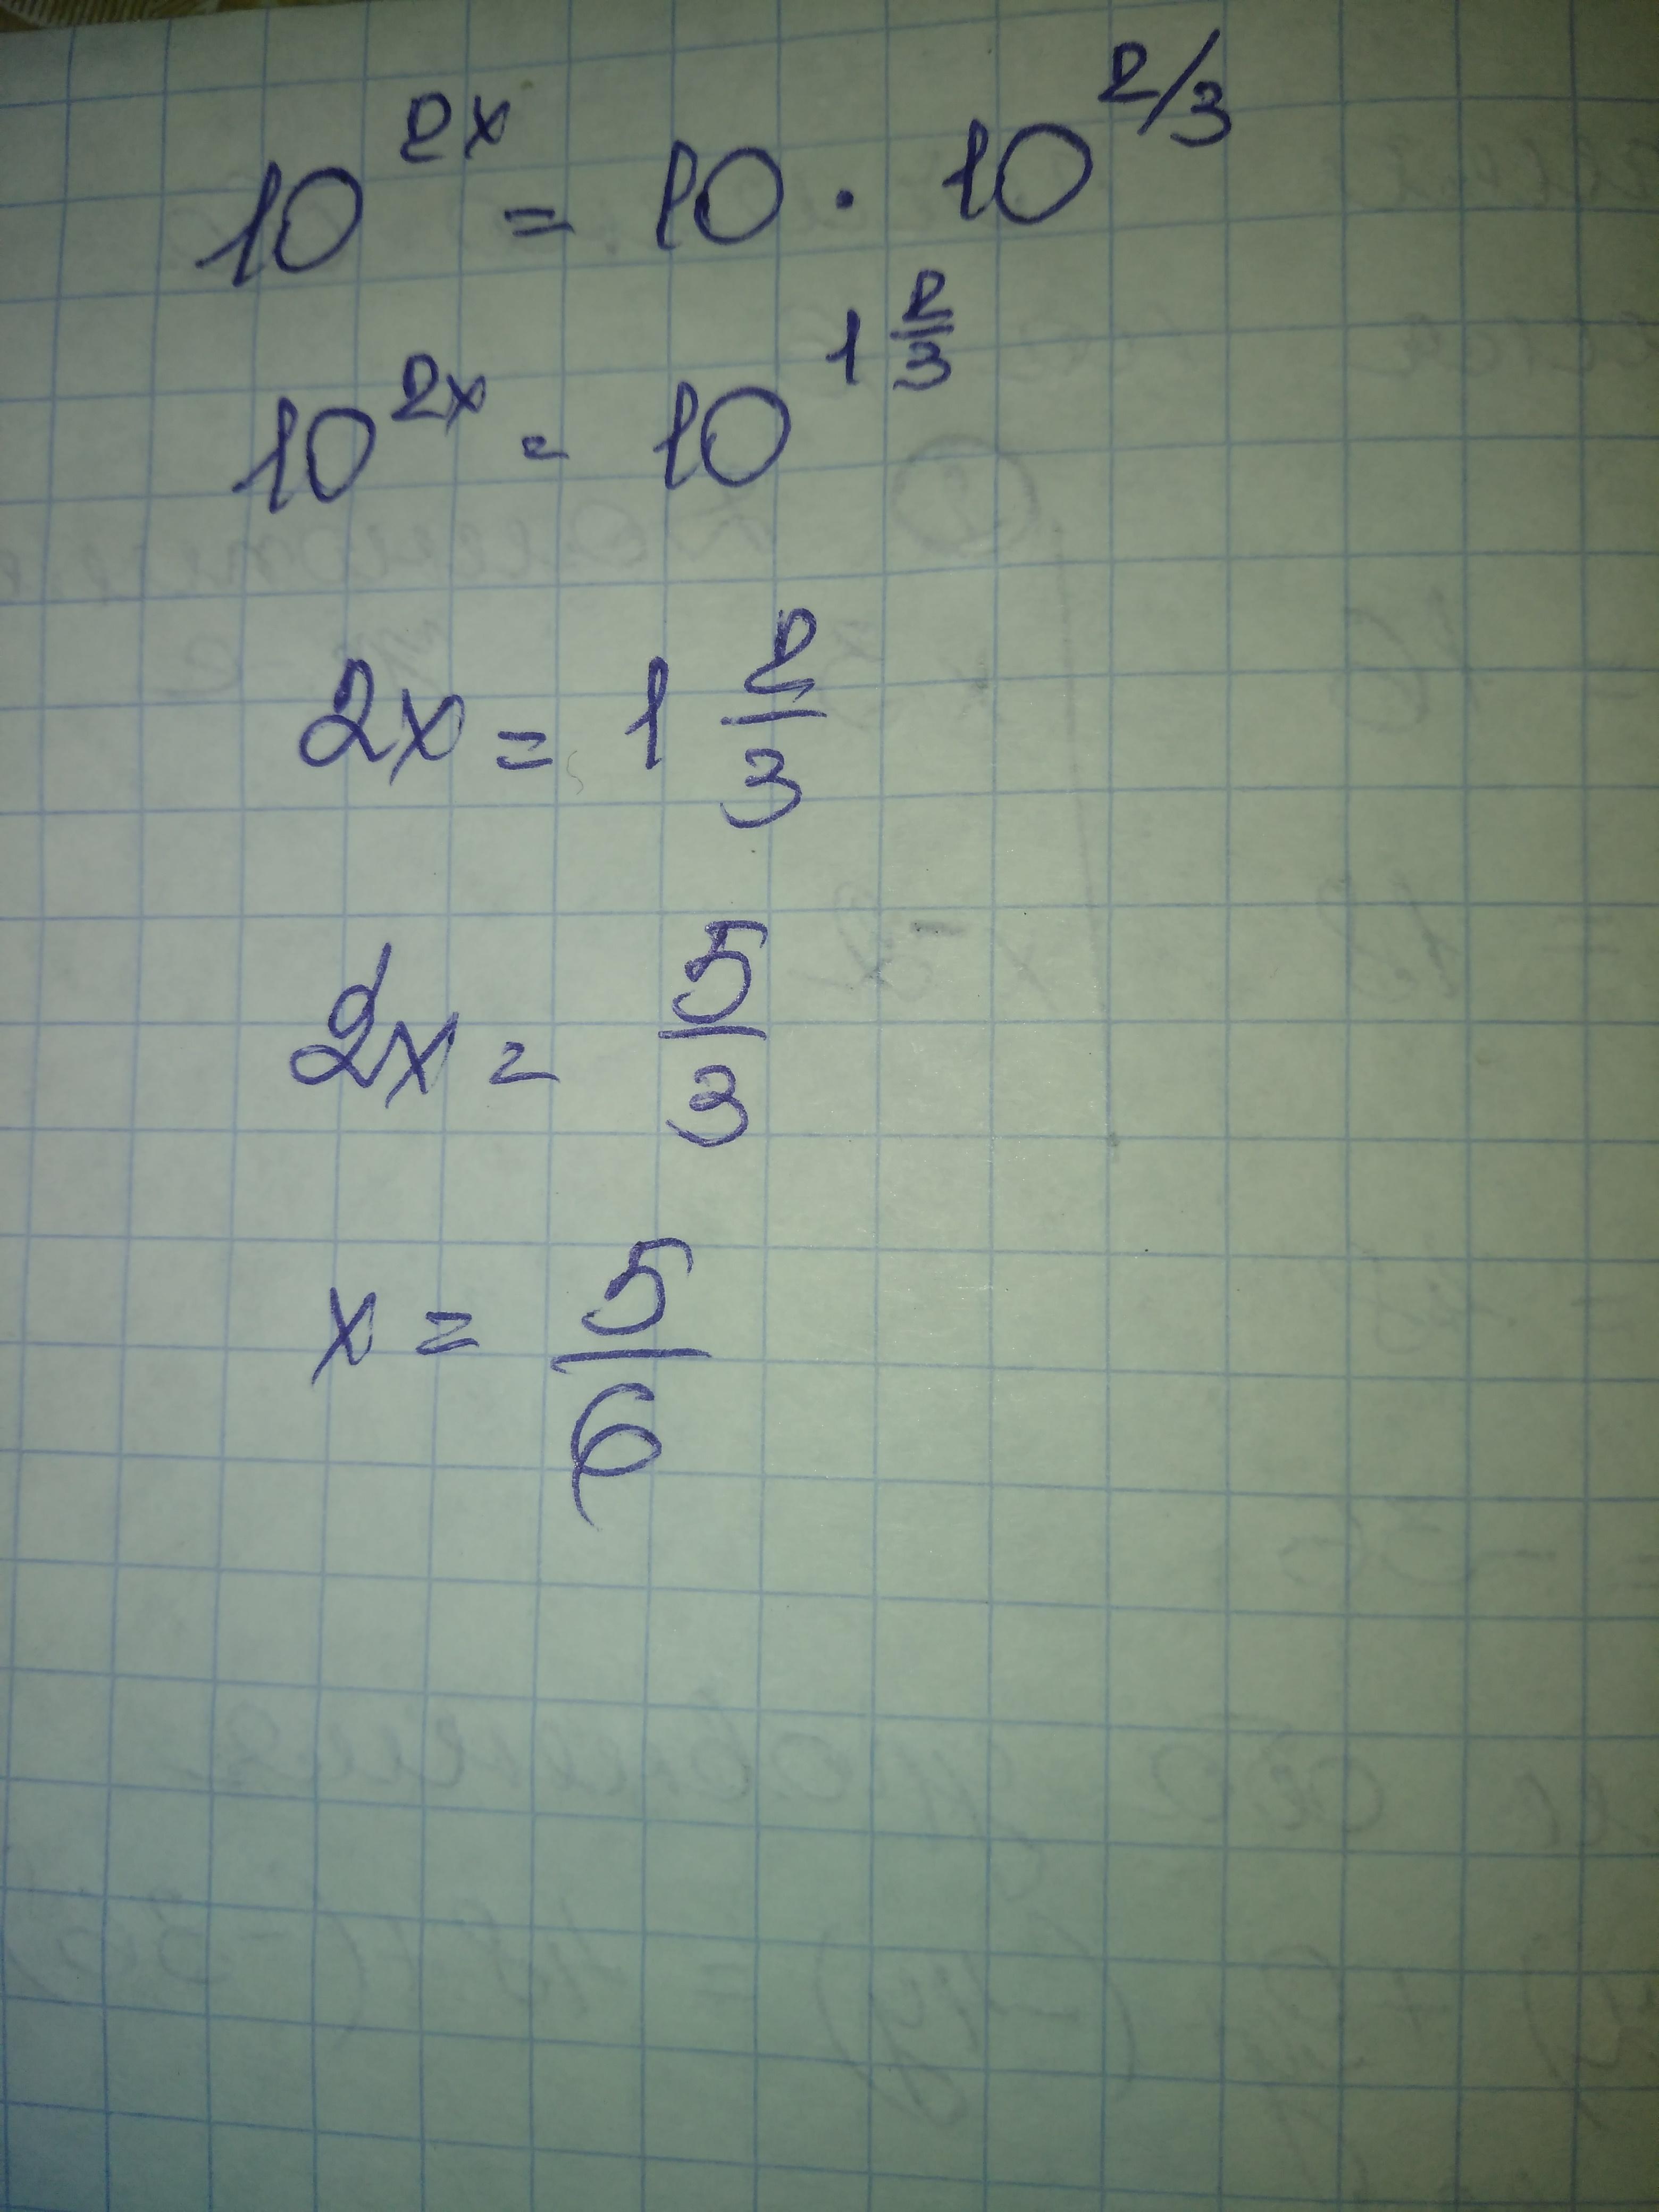 10^{2x} = 10 · 10^{2/3}
10^{2x} = 10^{1\frac{2}{3}}
2x = 1\frac{2}{3}
2x = \frac{5}{3}
x = \frac{5}{6}